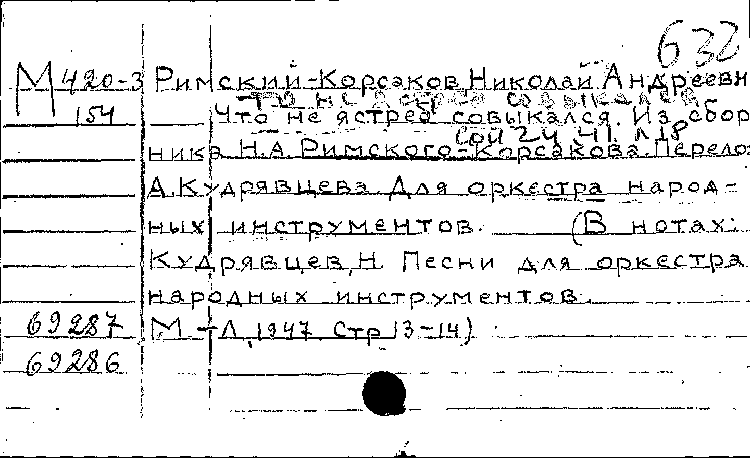 632
М 420-3 Римский-Корсаков Николай Андреевн
154 Что не ястреб совыкался. Из сбор
ника Н.А. Римского-Корсакова. Перелож
А. Кудрявцева. Для оркестра народ-
ных инструментов. (В нотах:
Кудрявцев, Н. Песни для оркестра
народных инструментов.
69287 М-Л, 1947 Стр 13-14)
69286